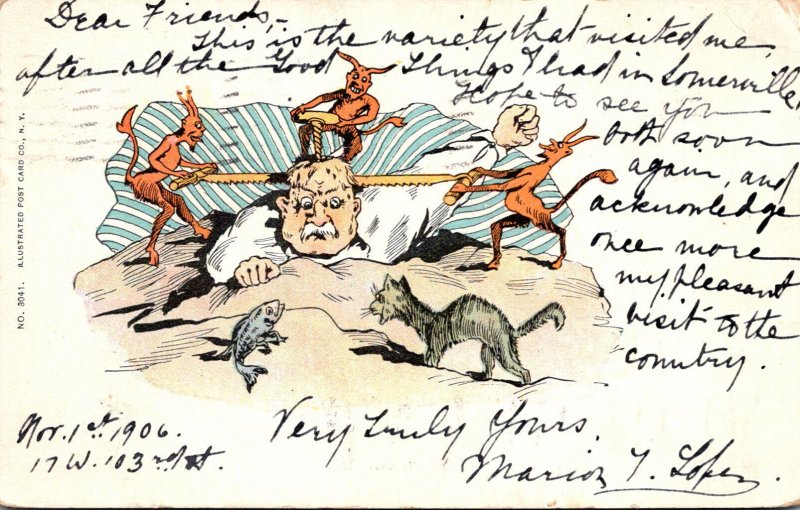 Dear Friends,-
This is the variety that visited me,
after all the Good Things I had in Somerville,
Hope to see you
both soon
again, and
acknowledge
once more
my pleasant
visit to the
country.
NO. 3041. ILLUSTRATED POST CARD CO., N. Y.
Nov. 1st 1906.
17 W. 103rd St.
Very Truly Yours,
Marion